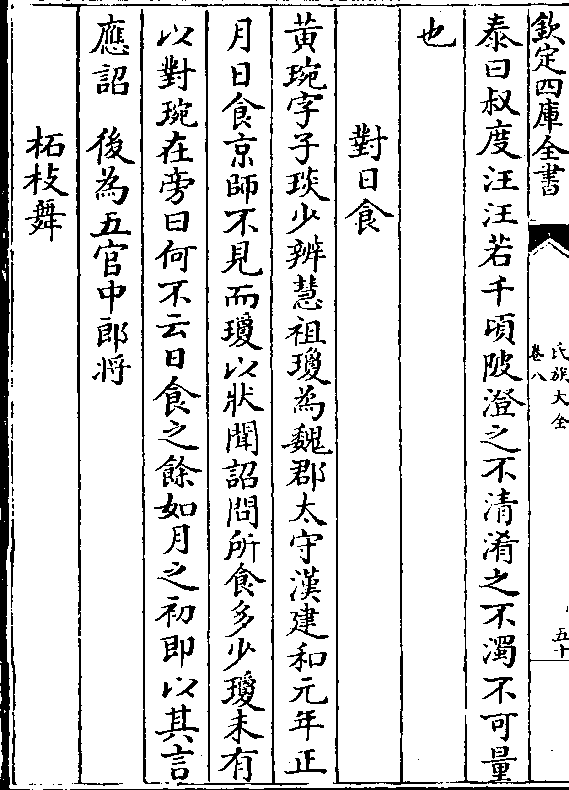 欽定四庫全書
氏族大全
卷八
五十
泰曰叔度汪汪若千頃陂澄之不清淆之不濁不可量
也
對日食
黄琬字子琰少辨慧祖瓊為魏郡太守漢建和元年正
月日食京師不見而瓊以狀聞詔問所食多少瓊未有
以對琬在旁曰何不云日食之餘如月之初即以其言
應詔　後為五官中郎将
柘枝舞